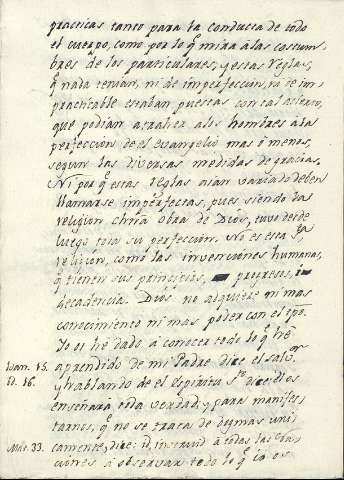 practicas tanto para la conducta de todo
el cuerpo, como por lo q̃ mira à las costum-
bres de los particulares, y estas reglas,
q̃ nada tenian, ni de imperfeccion, ni de im-
practicable estaban puestas con tal acierto,
que podian atraher a los hombres à la
perfeccion de el evangelio mas ò menos,
segun las diversas medidas de gracias.
Ni por q̃ estas reglas aian variado deben
llamarse imperfectas, pues siendo la
religion chrña obra de Dios, tuvo desde
luego toda su perfeccion. No es esta
religion, como las invenciones humanas,
q̃ tienen sus principios, progresos, i
decadencia. Dios no adquiere ni mas
conocimiento ni mas poder con el tpõ.
Yo os he dado à conocer todo lo q̃ hè
Ioan. 15. aprendido de mi Padre dice el Salvor
Id. 16. y hablando de el Espiritu Sto dice: El os
enseñarà toda verdad, y para manifes-
tarnos, q̃ no se trata de dogmas uni
camente, dice: id, instruid à todas las na-
ciones à observar todo lo q̃ io os